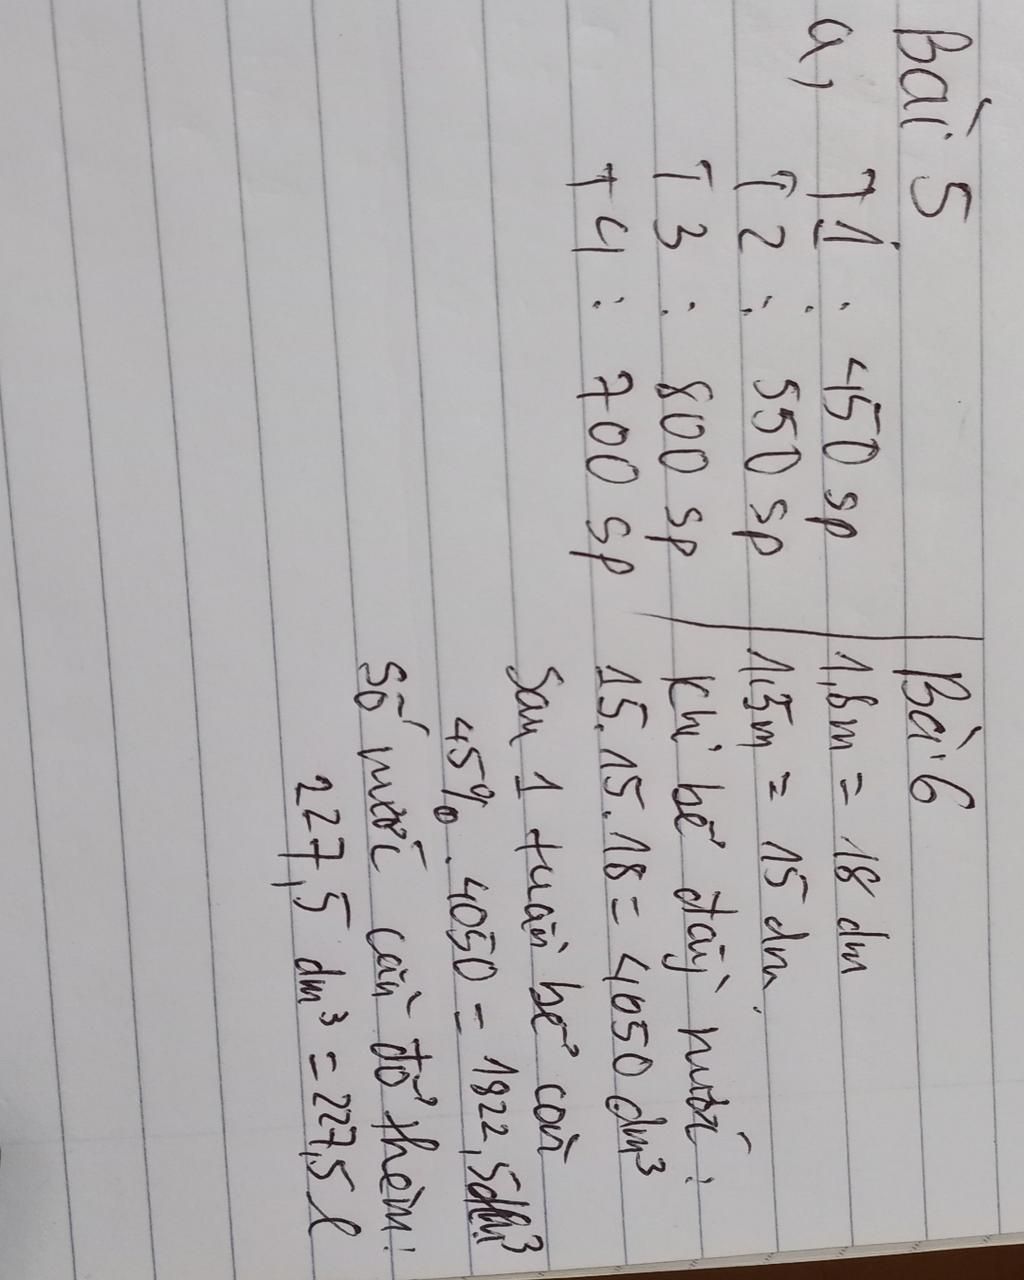 Bài 5
a, T1 : 450 sp
T2 : 550 sp
T3 : 800 sp
T4 : 700 sp
Bài 6
1,8m = 18 dm
1,5m = 15 dm
Khi bể đầy nước :
15.15.18 = 4050 dm³
Sau 1 tuần bể còn
45% . 4050 = 1822,5dm³
Số nước cần đổ thêm :
227,5 dm³ = 227,5 l